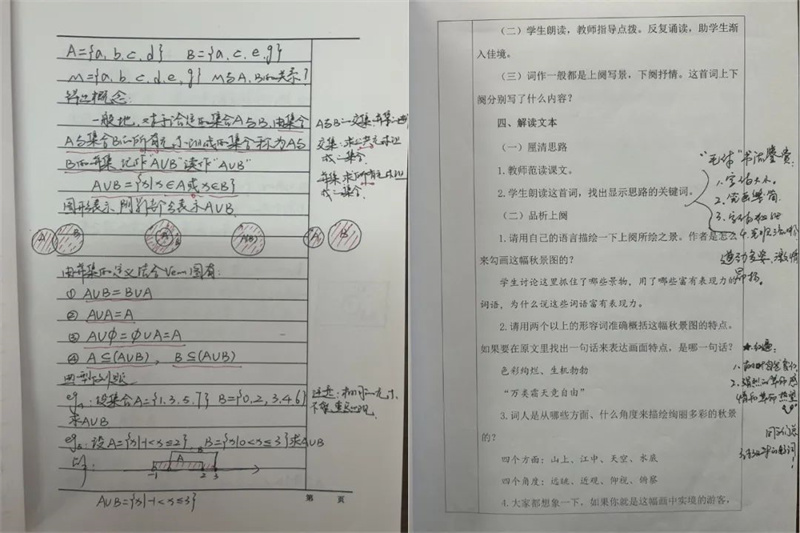 A={a,b,c,d} B={a,c,e,g}
M={a,b,c,d,e,g} M与A、B的关系?
概念:
一般地,对于给定的集合A与B,由集合
A与集合B的所有元素组成的集合称为A与
B的并集 记作"A∪B"读作"A∪B"
A∪B={x|x∈A或x∈B}
图形表示 阴影部分表示A∪B
A B A B A(B) A B
由并集的定义结合图有:
① A∪B=B∪A
② A∪A=A
③ A∪∅=∅∪A=A
④ A⊆(A∪B), B⊆(A∪B)
典型例题
eg1:设集合A={1,3,5,7} B={0,2,3,4,6}
求A∪B
eg2:设A={x|-1<x≤2}, B={x|0<x≤3}求A∪B
解:
A
-1 2 3
A∪B={x|-1<x≤3}
交集:求公共元素组
成一集合
并集:求所有元素组
成一集合
注意:相同元素,
第 页
(二)学生朗读,教师指导点拨。反复诵读,助学生渐
入佳境。
(三)词作一般都是上阕写景,下阕抒情。这首词上下
阕分别写了什么内容?
四、解读文本
(一)厘清思路
1.教师范读课文。
2.学生朗读这首词,找出显示思路的关键词。
(二)品析上阕
1.请用自己的语言描绘一下上阕所绘之景。作者是怎么
来勾画这幅秋景图的?
学生讨论这里抓住了哪些景物,用了哪些富有表现力的
词语,为什么说这些词语富有表现力。
2.请用两个以上的形容词准确概括这幅秋景图的特点。
如果要在原文里找出一句话来表达画面特点,是哪一句话?
色彩绚烂、生机勃勃
"万类霜天竞自由"
3.词人是从哪些方面、什么角度来描绘绚丽多彩的秋景
的?
四个方面:山上、江中、天空、水底
四个角度:远眺、近观、仰视、俯察
4.大家都想象一下,如果你就是这幅画中实境的游客,
"毛体"书法鉴赏:
2.笔画繁简
激情
昂扬